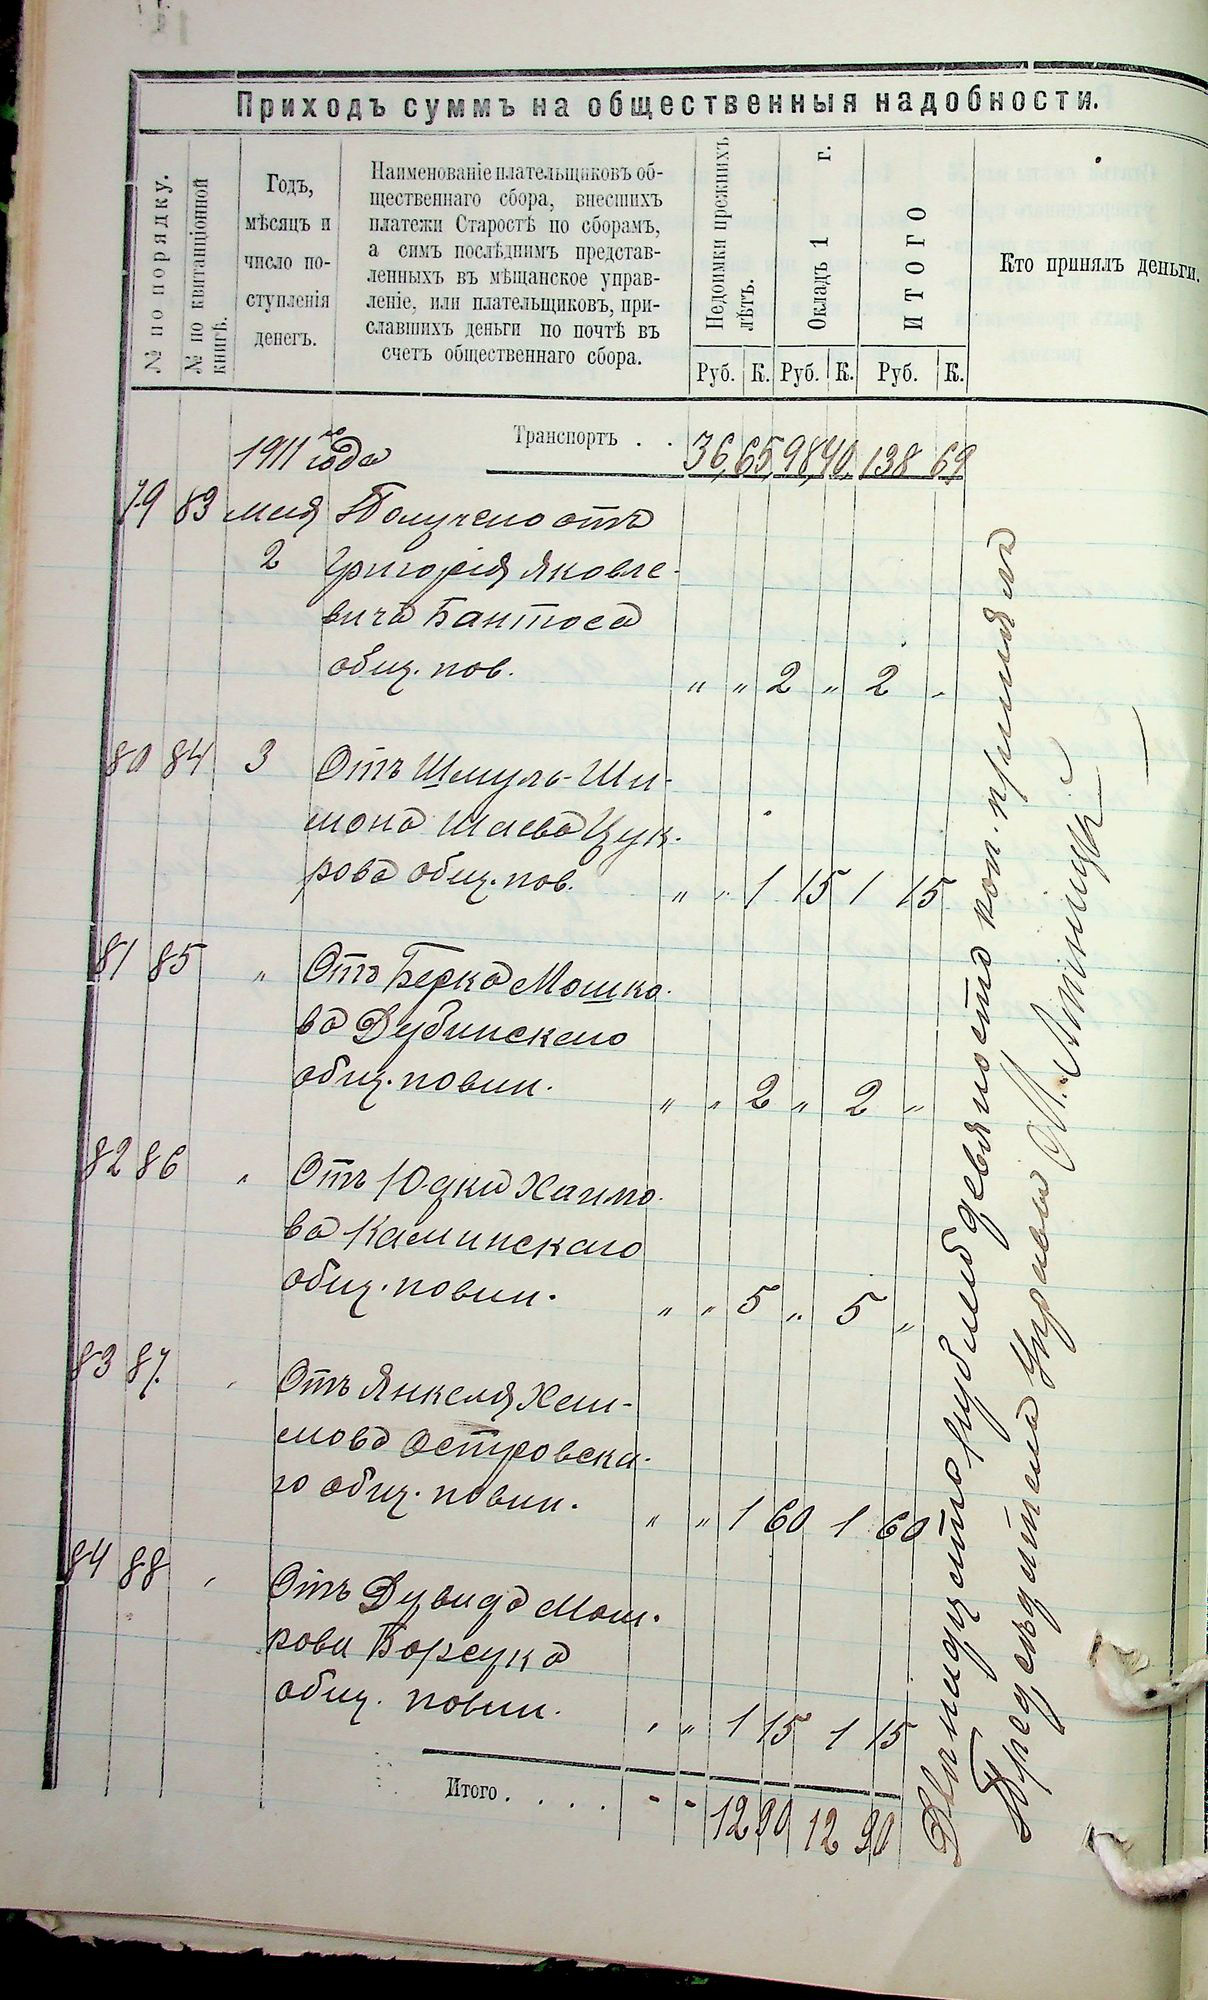 Приходъ суммъ на общественныя надобности.
№ по порядку.
№ по квитанціонной
книгѣ.
Годъ,
мѣсяцъ и
число по-
ступленія
денегъ.
Наименованіе плательщиковъ об-
щественнаго сбора, внесшихъ
платежи Старостѣ по сборамъ,
а симъ послѣднимъ представ-
ленныхъ въ мѣщанское управ-
леніе, или плательщиковъ, при-
славшихъ деньги по почтѣ въ
счетъ общественнаго сбора.
Недоимки прежнихъ
лѣтъ.
Окладъ 1 г.
ИТОГО
Кто принялъ деньги.
Руб. К. Руб. К. Руб. К.
1911 года Транспортъ . . 36 65 98 40 138 69
79 83 мая Получено отъ
2 Григорія Яковле-
вича Бантоса
общ. пов. " " 2 " 2 "
80 84 3 Отъ Шмуль-Ши-
мона Шаева Цук-
рова общ. пов. " " 1 15 1 15
81 85 " Отъ Берка Мошко-
ва Дубинскаго
общ. повин. " " 2 " 2 "
82 86 " Отъ Юдки Хаимо-
ва Каминскаго
общ. повин. " " 5 " 5 "
83 87 " Отъ Янкеля Хаи-
мова Островска-
го общ. повин. " " 1 60 1 60
84 88 " Отъ Дувида Мош-
кова Борсука
общ. повин. " " 1 15 1 15
Итого . . . . - - 12 90 12 90
Двѣнадцать рублей девяносто коп. принялъ
Предсѣдатель Управы М.